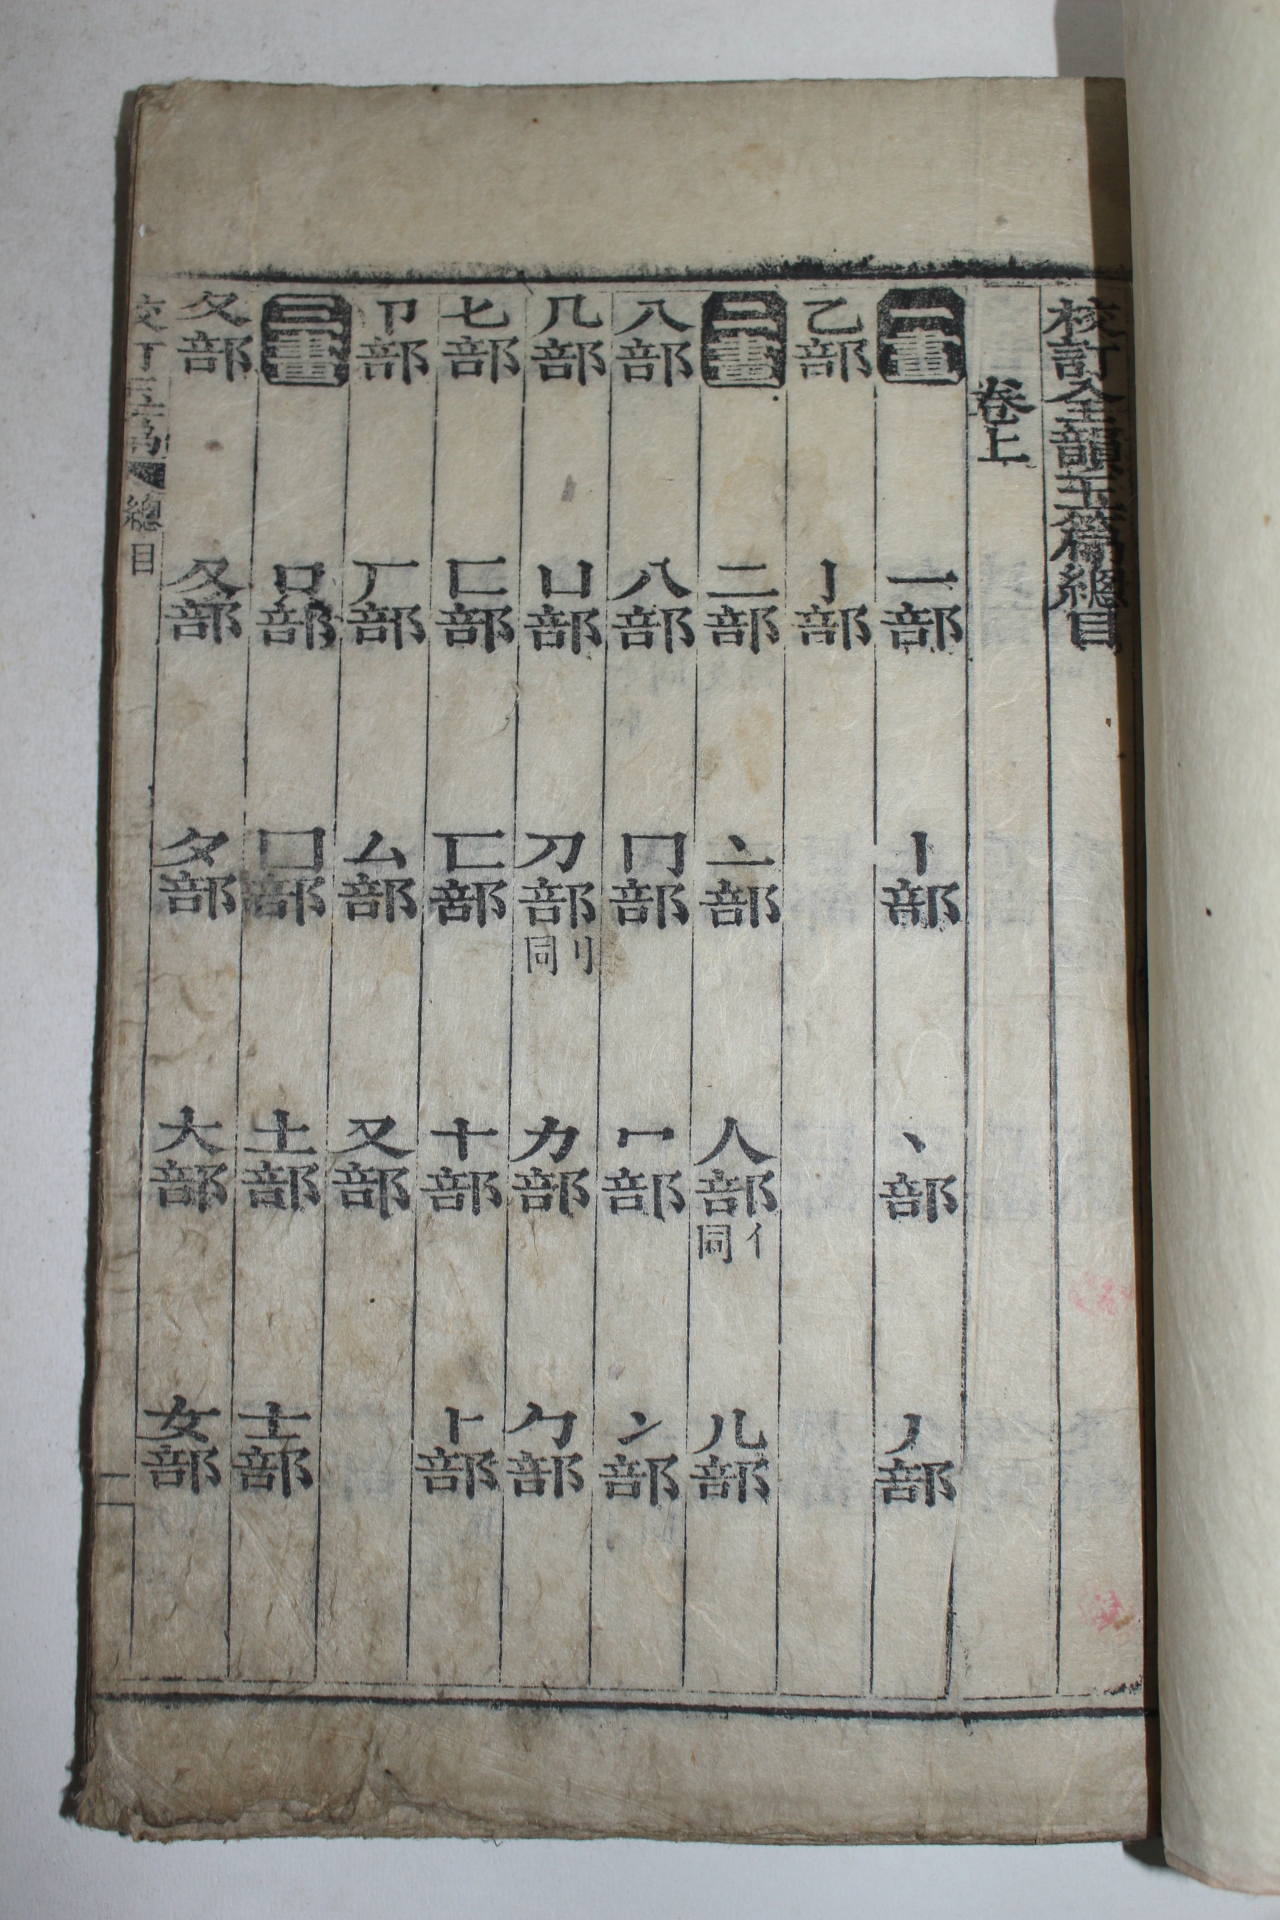 校訂全韻玉篇總目
卷上
一畫 一部 丨部 丶部 丿部
乙部 亅部
二畫 二部 亠部 人部 亻同 儿部
入部 八部 冂部 冖部 冫部
几部 凵部 刀部 刂同 力部 勹部
匕部 匚部 匸部 十部 卜部
卩部 厂部 厶部 又部
三畫 口部 囗部 土部 士部
夂部 夊部 夕部 大部 女部
校訂玉篇 總目 一